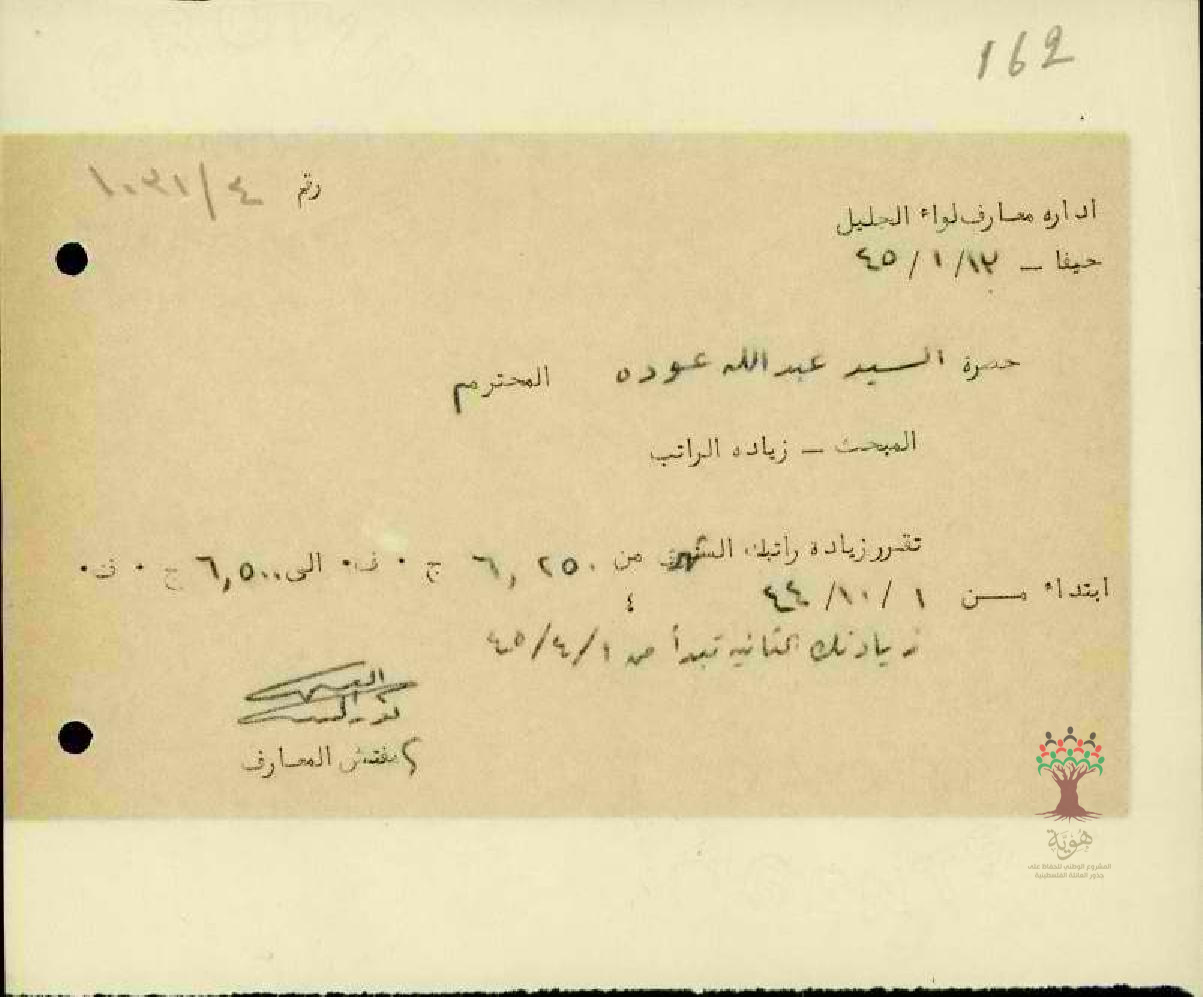 162
رقم ١٠٣١/٤
اداره معارف لواء الجليل
حيفا – ١٢/١/٤٥
حضرة السيد عبدالله عوده المحترم
المبحث – زياده الراتب
تقرر زيادة راتبك الشهري من ٦,٢٥٠ ج ٠ ف٠ الى ٦,٥٠٠ ج ٠ ف٠
ابتداء من ١/١٠/٤٤
٤
زيادتك الثانيه تبدأ من ١/٤/٤٥
مفتش المعارف
هُوِيَّة
المشروع الوطني للحفاظ على
جذور العائلة الفلسطينية